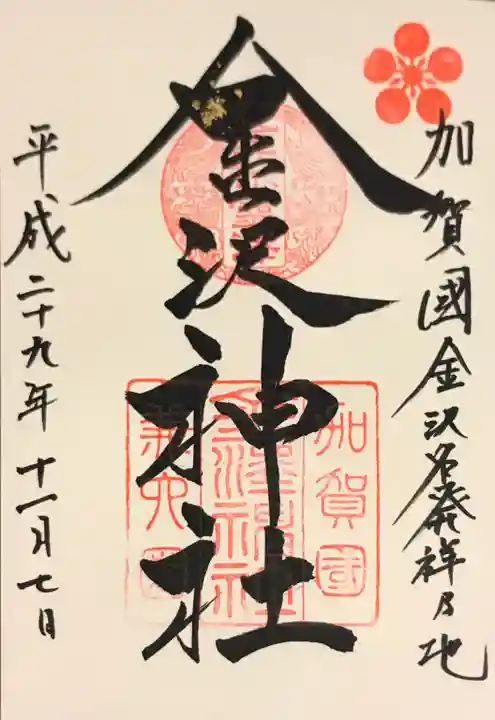 加賀國金沢名発祥乃地
金沢神社
加賀國
金澤神社
兼六園
平成二十九年十一月七日